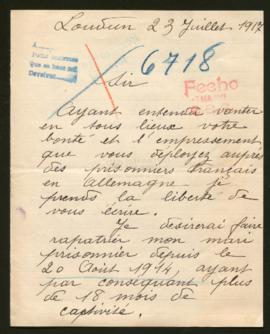 Loudun 23 Juillet 1917
6718
Sir
Fecho
Ayant entendu vanter
en tous lieux votre
bonté et l'empressement
que vous déployez auprès
des prisonniers français
en Allemagne je
prends la liberté de
vous écrire.
Je desirerai faire
rapatrier mon mari
prisonnier depuis le
20 Août 1914, ayant
par conséquant plus
de 18 mois de
captivité.